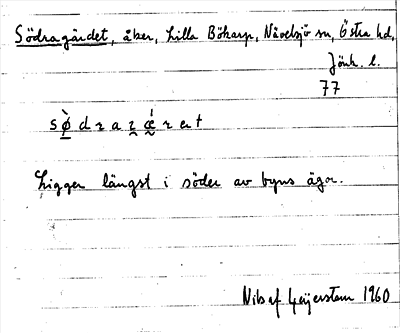 Södragärdet, åker, Lilla Bökarp, Nävelsjö sn, Östra hd,
Jönk. l.
77
Ligger längst i söder av byns ägor.
Nils af Geijerstam 1960